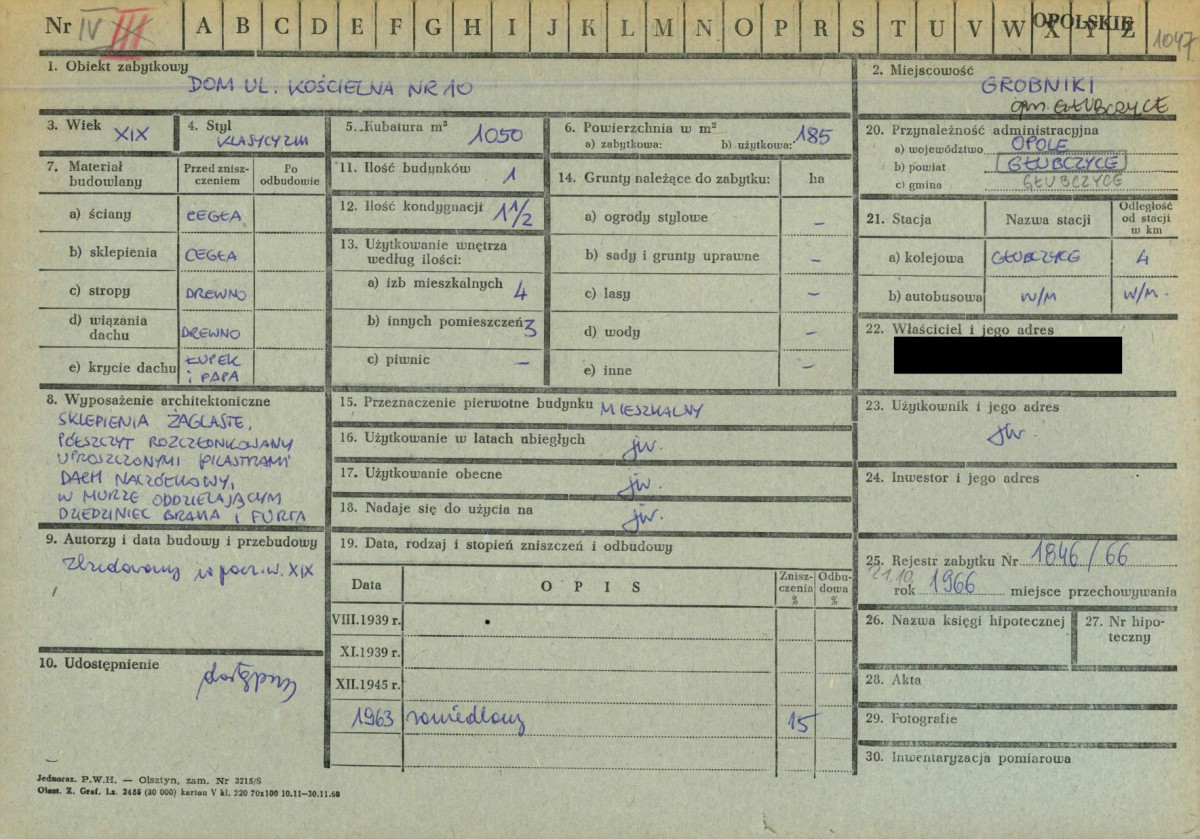 Nr IV III A B C D E F G H I J K L M N O P R S T U V W X Y Z OPOLSKIE 1047
1. Obiekt zabytkowy
DOM UL. KOŚCIELNA NR 10
2. Miejscowość
GROBNIKI
gm. GŁUBCZYCE
3. Wiek XIX
4. Styl KLASYCYZM
5. Kubatura m³ 1050
6. Powierzchnia w m²
a) zabytkowa: b) użytkowa: 185
20. Przynależność administracyjna
a) województwo OPOLE
b) powiat GŁUBCZYCE
c) gmina GŁUBCZYCE
7. Materiał budowlany
Przed zniszczeniem
Po odbudowie
a) ściany CEGŁA
b) sklepienia CEGŁA
c) stropy DREWNO
d) wiązania dachu DREWNO
e) krycie dachu ŁUPEK i PAPA
11. Ilość budynków 1
12. Ilość kondygnacji 1 1/2
13. Użytkowanie wnętrza
według ilości:
a) izb mieszkalnych 4
b) innych pomieszczeń 3
c) piwnic –
14. Grunty należące do zabytku: ha
a) ogrody stylowe –
b) sady i grunty uprawne –
c) lasy –
d) wody –
e) inne –
21. Stacja
Nazwa stacji
Odległość
od stacji
w km
a) kolejowa GŁUBCZYCE 4
b) autobusowa W/M W/M.
22. Właściciel i jego adres
8. Wyposażenie architektoniczne
SKLEPIENIA ŻAGLASTE,
PÓŁSZCZYT ROZCZŁONKOWANY
UPROSZCZONYMI PILASTRAMI
DACH NACZÓŁKOWY,
W MURZE ODDZIELAJĄCYM
DZIEDZINIEC BRAMA I FURTA
15. Przeznaczenie pierwotne budynku MIESZKALNY
16. Użytkowanie w latach ubiegłych jw.
17. Użytkowanie obecne jw.
18. Nadaje się do użycia na jw.
23. Użytkownik i jego adres
jw.
24. Inwestor i jego adres
9. Autorzy i data budowy i przebudowy
zbudowany w pocz. w. XIX
10. Udostępnienie
dostępny
19. Data, rodzaj i stopień zniszczeń i odbudowy
Data
OPIS
Zniszczenia
%
Odbudowa
%
VIII.1939 r.
XI.1939 r.
XII.1945 r.
1963 15
25. Rejestr zabytku Nr 1846/66
21.10.
rok 1966 miejsce przechowywania
26. Nazwa księgi hipotecznej
27. Nr hipoteczny
28. Akta
29. Fotografie
30. Inwentaryzacja pomiarowa
Jednoraz. P.W.H. — Olsztyn, zam. Nr 3215/S
Olszt. Z. Graf. Lz. 2485 (30 000) karton V kl. 220 70x100 10.11—30.11.60